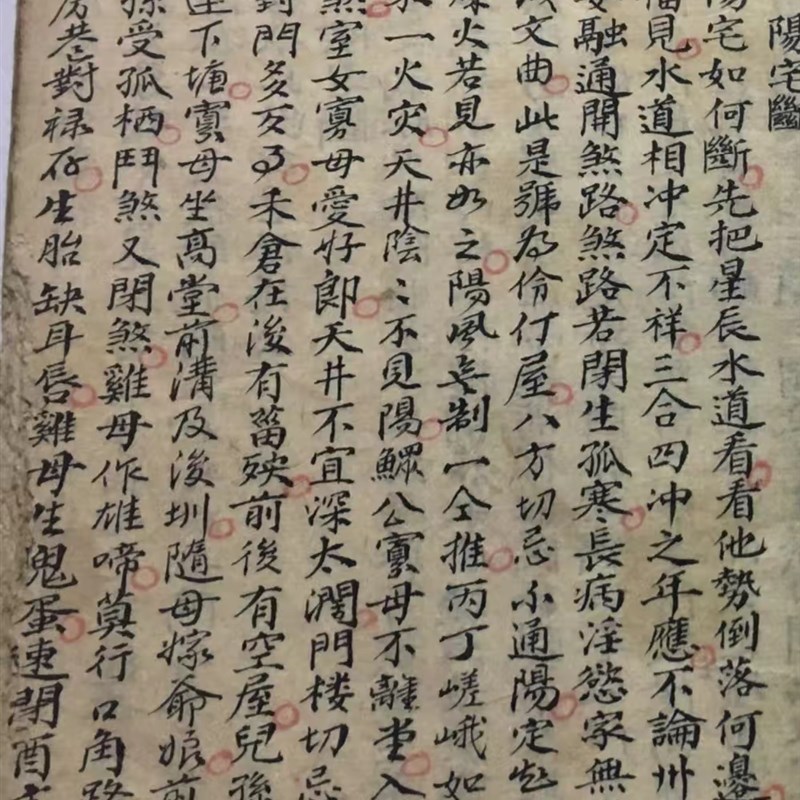 陽宅斷
陽宅如何斷先把星辰水道看看他勢倒落何邊
福見水道相冲定不祥三合四冲之年應不論卅
融通開煞路煞路若閉生孤寒長病淫慾家無
文曲此是號為伶仃屋八方切忌不通陽定起
火若見亦如之陽風無制一仝推丙丁嵯峨如
一火灾天井陰〻不見陽鰥公寡母不離堂入
煞室女寡母愛好郎天井不宜深太濶門楼切忌
對門多交禾倉在後有啚殃前後有空屋兒孫
下塘寡母坐高堂前溝及後圳隨母嫁爺娘前
孫受孤栖鬥煞又閉煞雞母作雄啼莫行口角路
房巷對祿存生胎缺耳唇雞母生鬼蛋連閉酉